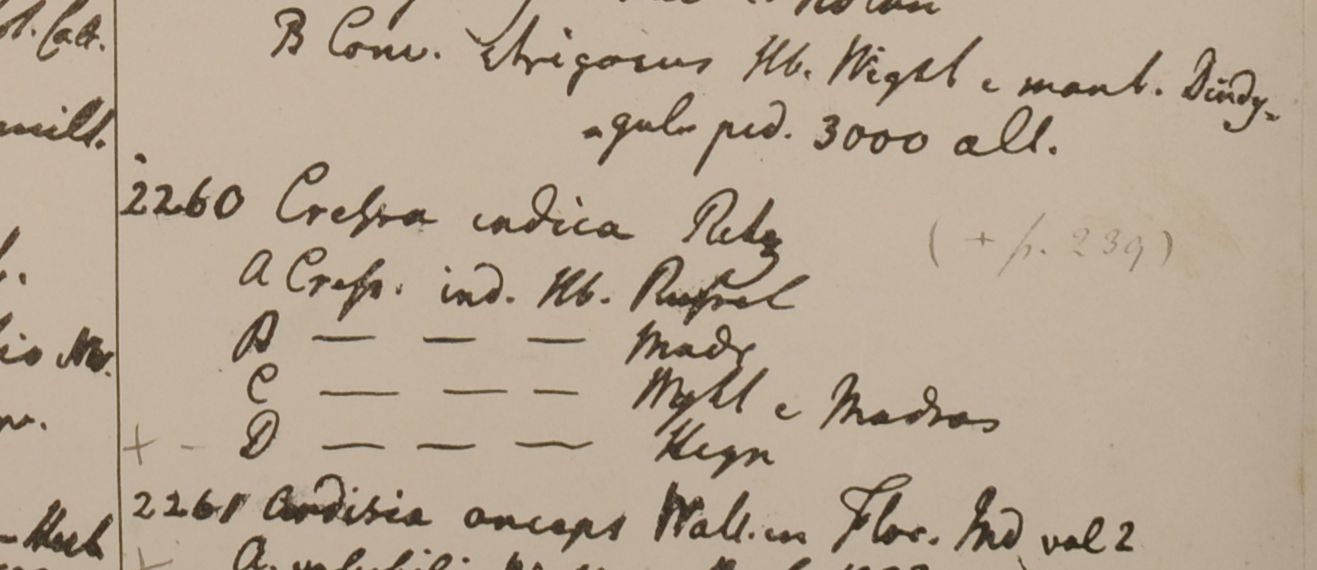 B Conv. strigosus Hb. Wight e mont. Dindy-
-gul ped. 3000 alt.
2260 Cressa indica Retz (+ p. 239)
A Cress. ind. Hb. Russel
B — — — Madr
C — — — Wight e Madras
+ - D — — — Heyn
2261 Ardisia anceps Wall. in Flor. Ind vol 2